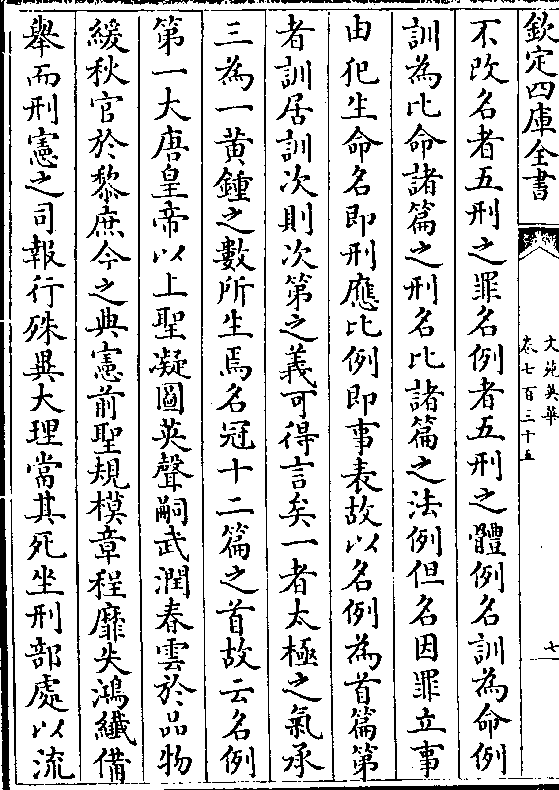 欽定四庫全書
文苑英華
卷七百三十五
七
不改名者五刑之罪名例者五刑之體例名訓為命例
訓為比命諸篇之刑名比諸篇之法例但名因罪立事
由犯生命名即刑應比例即事表故以名例為首篇第
者訓居訓次則次第之義可得言矣一者太極之氣承
三為一黃鍾之數所生焉名冠十二篇之首故云名例
第一大唐皇帝以上聖凝圖英聲嗣武潤春雲於品物
緩秋官於黎庶今之典憲前聖規模章程靡失鴻纖備
舉而刑憲之司報行殊異大理當其死坐刑部處以流